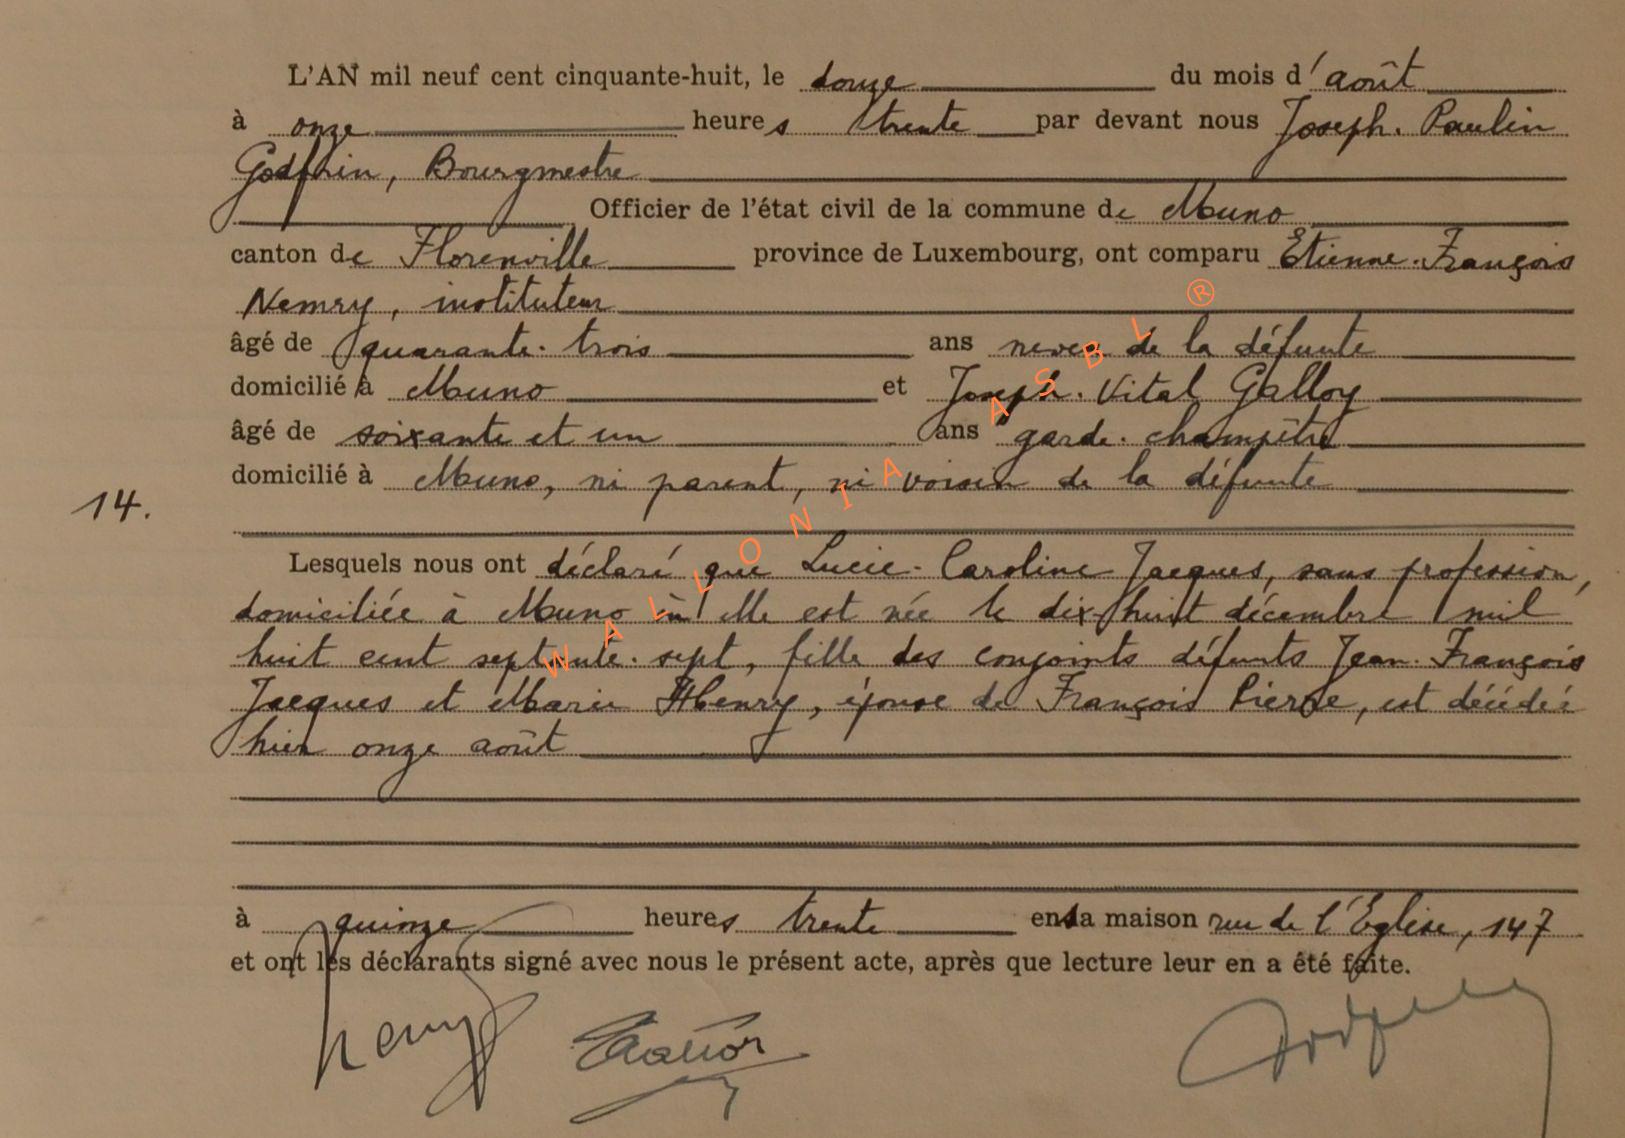 L'AN mil neuf cent cinquante-huit, le douze du mois d'août
à onze heures trente par devant nous Joseph-Paulin
Godfrin, Bourgmestre
Officier de l'état civil de la commune de Muno
canton de Florenville province de Luxembourg, ont comparu Etienne-François
Nemry, instituteur
âgé de quarante-trois ans neveu de la défunte
domicilié à Muno et Joseph-Vital Galloy
âgé de soixante et un ans garde-champêtre
domicilié à Muno, ni parent, ni voisin de la défunte
14.
Lesquels nous ont déclaré que Lucie-Caroline Jacques, sans profession,
domiciliée à Muno où elle est née le dix-huit décembre mil
huit cent septante-sept, fille des conjoints défunts Jean-François
Jacques et Marie Henry, épouse de François Pierre, est décédée
hier onze août
à quinze heures trente en sa maison rue de l'Eglise, 147
et ont les déclarants signé avec nous le présent acte, après que lecture leur en a été faite.
WALLONIA ASBL ®